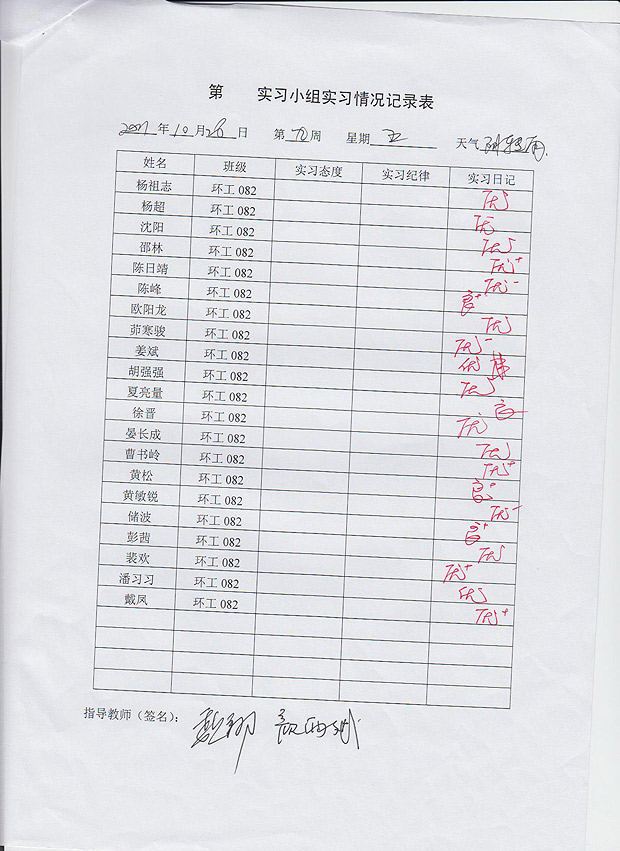 第 实习小组实习情况记录表
年 10 月 日 第 九 周 星期 五 天气 阴转雨
姓名 班级 实习态度 实习纪律 实习日记
杨祖志 环工 082 优
杨超 环工 082 优
沈阳 环工 082 优
邵林 环工 082 优+
陈日靖 环工 082 优-
陈峰 环工 082 良+
欧阳龙 环工 082 优
茆寒骏 环工 082 优-
姜斌 环工 082 优
胡强强 环工 082 优
夏亮量 环工 082 良-
徐晋 环工 082 优
晏长成 环工 082 优
曹书岭 环工 082 优+
黄松 环工 082 良+
黄敏锐 环工 082 优-
储波 环工 082 良+
彭茜 环工 082 优
裴欢 环工 082 优+
潘习习 环工 082 优
戴凤 环工 082 优+
指导教师（签名）：